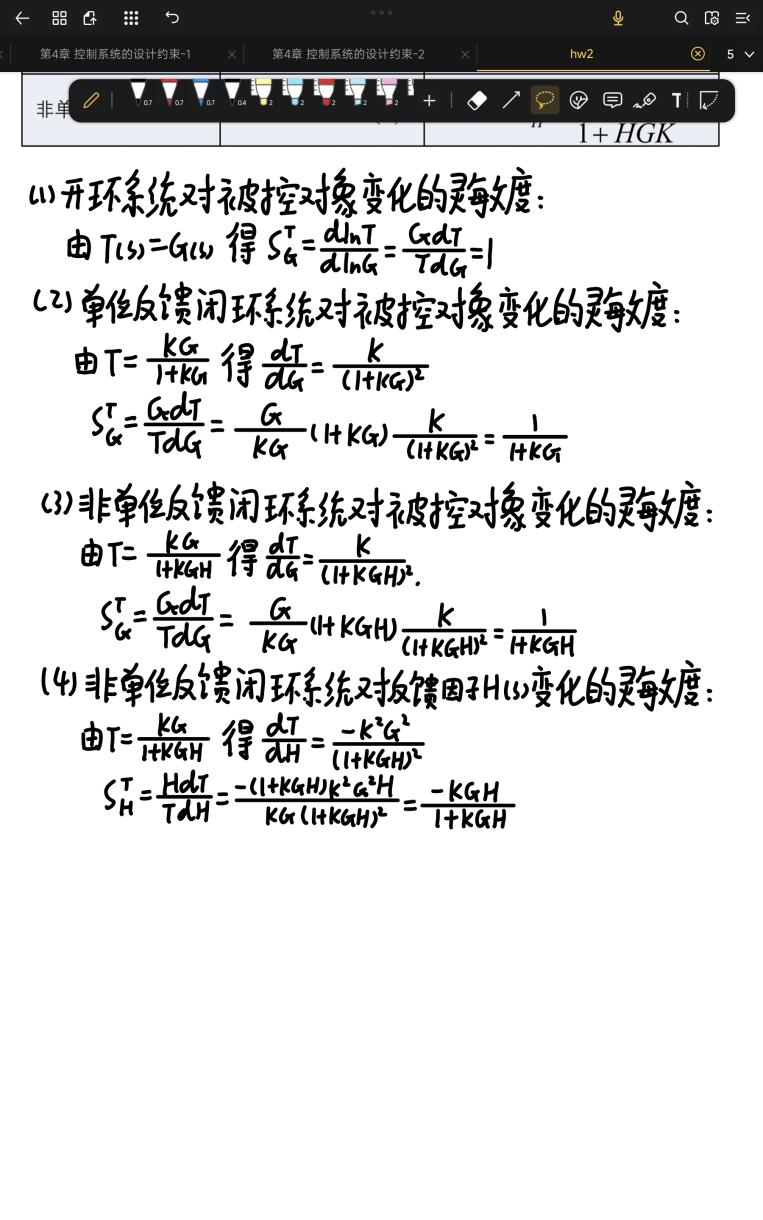 第4章 控制系统的设计约束-1 × 第4章 控制系统的设计约束-2 × hw2 5
0.7 0.7 0.7 0.4 2 2 2 2 2 + T
非单
1+HGK
(1)开环系统对被控对象变化的灵敏度:
由T(s)=G(s) 得 S_G^T=dlnT/dlnG=GdT/TdG=1
(2)单位反馈闭环系统对被控对象变化的灵敏度:
由T=KG/(1+KG) 得 dT/dG=K/(1+KG)²
S_G^T=GdT/TdG=G/KG(1+KG)K/(1+KG)²=1/(1+KG)
(3)非单位反馈闭环系统对被控对象变化的灵敏度:
由T=KG/(1+KGH) 得 dT/dG=K/(1+KGH)².
S_G^T=GdT/TdG=G/KG(1+KGH)K/(1+KGH)²=1/(1+KGH)
(4)非单位反馈闭环系统对反馈因子H(s)变化的灵敏度:
由T=KG/(1+KGH) 得 dT/dH=-K²G²/(1+KGH)²
S_H^T=HdT/TdH=-(1+KGH)K²G²H/KG(1+KGH)²=-KGH/(1+KGH)